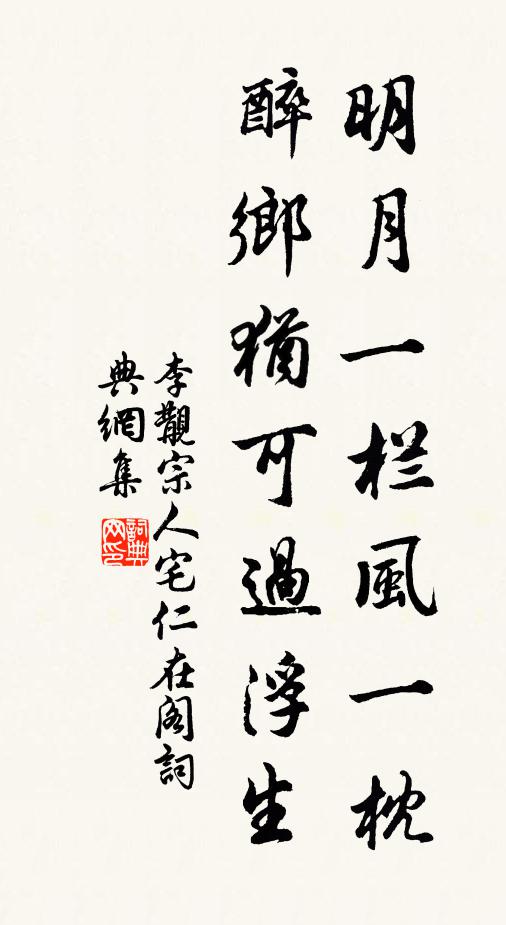 明月一栏風一枕
醉鄉猶可過浮生
李覯宗人宅仁在阁詞
典網集
詞典网印